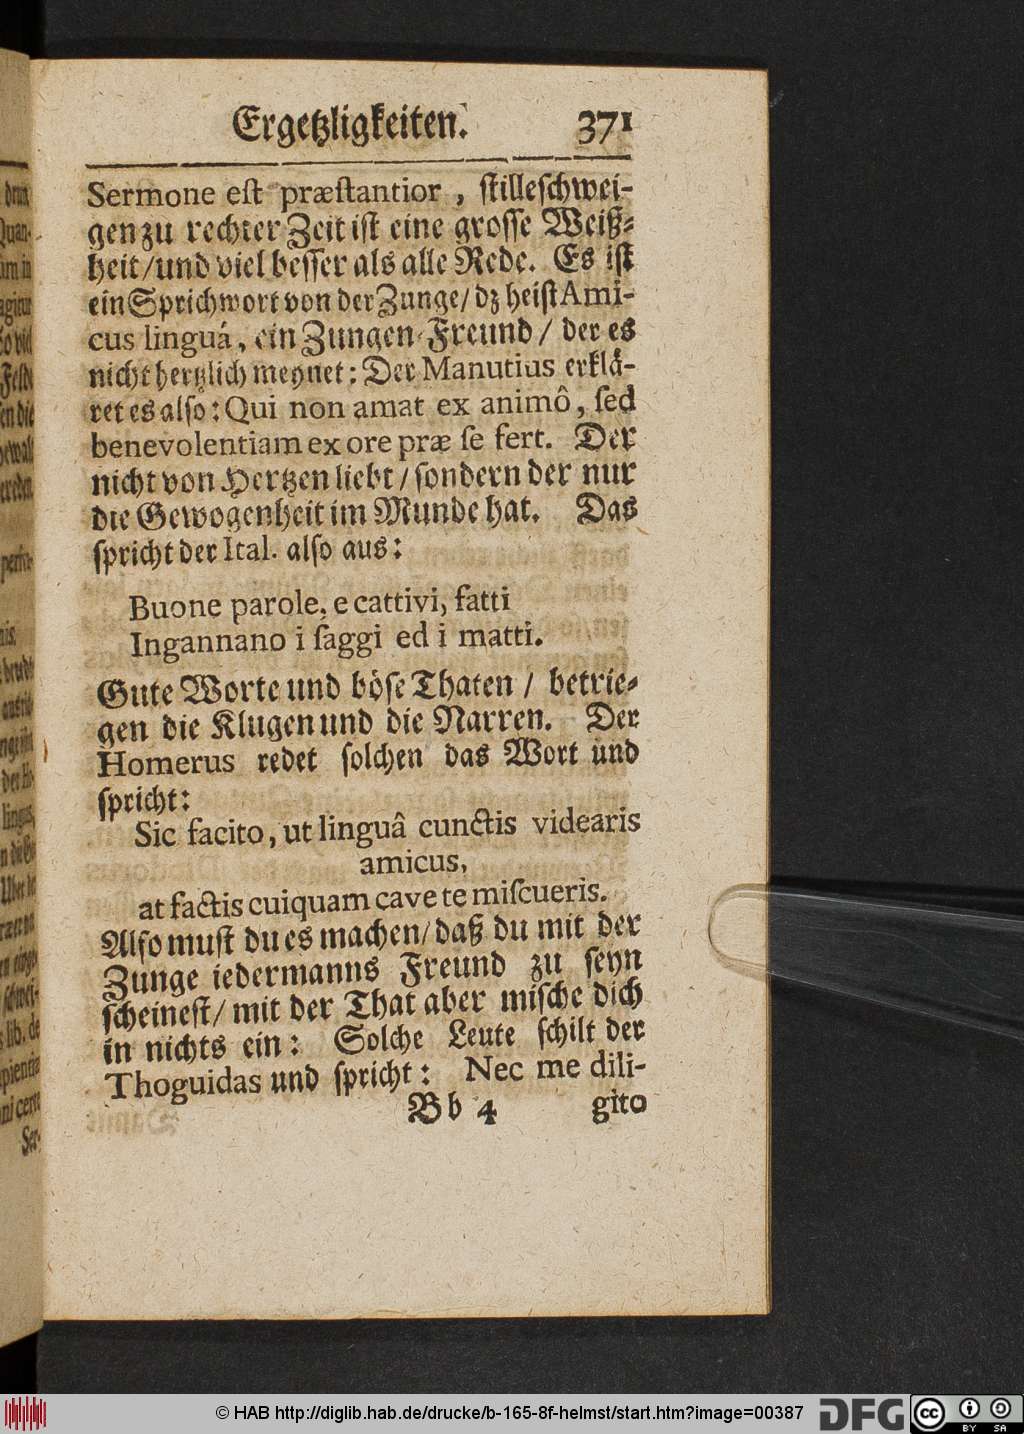 Ergetzligkeiten. 371
Sermone eſt præſtantior , ſtilleſchwei-
gen zu rechter Zeit iſt eine groſſe Weiß-
heit/und viel beſſer als alle Rede. Es iſt
ein Sprichwort von der Zunge/ dz heiſt Ami-
cus linguá, ein Zungen-Freund/ der es
nicht hertzlich meynet: Der Manutius erklå-
ret es alſo: Qui non amat ex animô, ſed
benevolentiam ex ore præ ſe fert. Der
nicht von Hertzen liebt/ ſondern der nur
die Gewogenheit im Munde hat. Das
ſpricht der Ital. alſo aus:
Buone parole, e cattivi, fatti
Ingannano i ſaggi ed i matti.
Gute Worte und böſe Thaten / betrie-
gen die Klugen und die Narren. Der
Homerus redet ſolchen das Wort und
ſpricht:
Sic facito, ut linguâ cunctis videaris
amicus,
at factis cuiquam cave te miſcueris.
Alſo muſt du es machen/ daß du mit der
Zunge iedermanns Freund zu ſeyn
ſcheineſt/ mit der That aber miſche dich
in nichts ein: Solche Leute ſchilt der
Thoguidas und ſpricht: Nec me dili-
Bb 4 gito
© HAB http://diglib.hab.de/drucke/b-165-8f-helmst/start.htm?image=00387 DFG cc BY SA